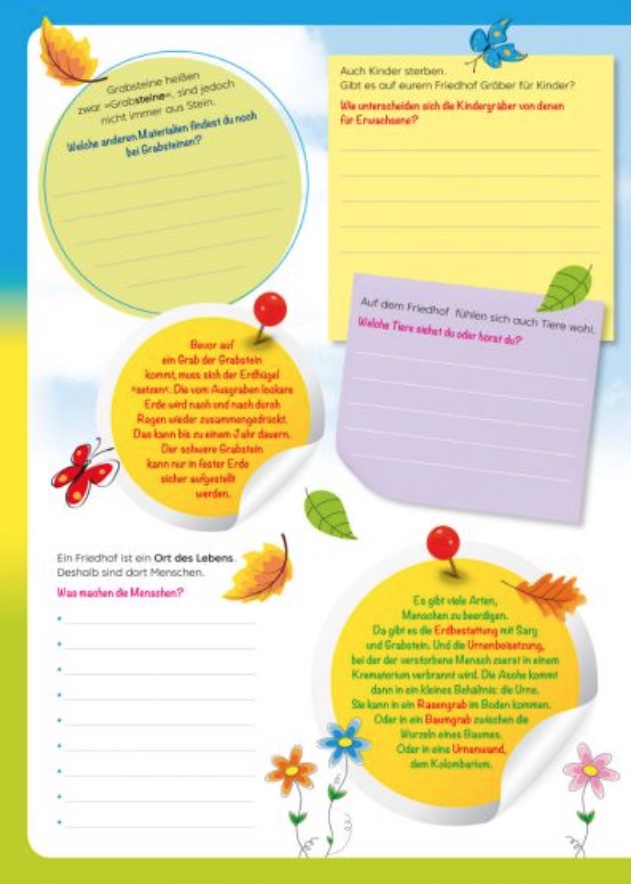 Grabsteine heißen
zwar »Grabsteine«, sind jedoch
nicht immer aus Stein.
Welche anderen Materialien findest du noch
bei Grabsteinen?
Auch Kinder sterben.
Gibt es auf eurem Friedhof Gräber für Kinder?
Wie unterscheiden sich die Kindergräber von denen
für Erwachsene?
Auf dem Friedhof fühlen sich auch Tiere wohl.
Welche Tiere siehst du oder hörst du?
Bevor auf
ein Grab der Grabstein
kommt, muss sich der Erdhügel
»setzen«. Die vom Ausgraben lockere
Erde wird nach und nach durch
Regen wieder zusammengedrückt.
Das kann bis zu einem Jahr dauern.
Der schwere Grabstein
kann nur in fester Erde
sicher aufgestellt
werden.
Ein Friedhof ist ein Ort des Lebens.
Deshalb sind dort Menschen.
Was machen die Menschen?
Es gibt viele Arten,
Menschen zu beerdigen.
Da gibt es die Erdbestattung mit Sarg
und Grabstein. Und die Urnenbeisetzung,
bei der der verstorbene Mensch zuerst in einem
Krematorium verbrannt wird. Die Asche kommt
dann in ein kleines Behältnis: die Urne.
Sie kann in ein Rasengrab im Boden kommen.
Oder in ein Baumgrab zwischen die
Wurzeln eines Baumes.
Oder in eine Urnenwand,
dem Kolombarium.